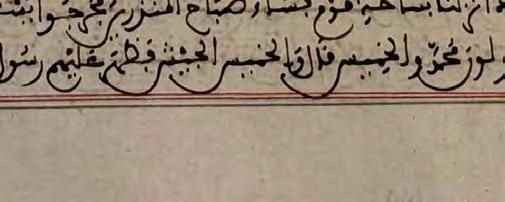 انزلنا بساحة قوم فساء صباح المنذرين فخرجوا
ولون محمد والخميس قال والخميس الجيش فظهر عليهم رسول